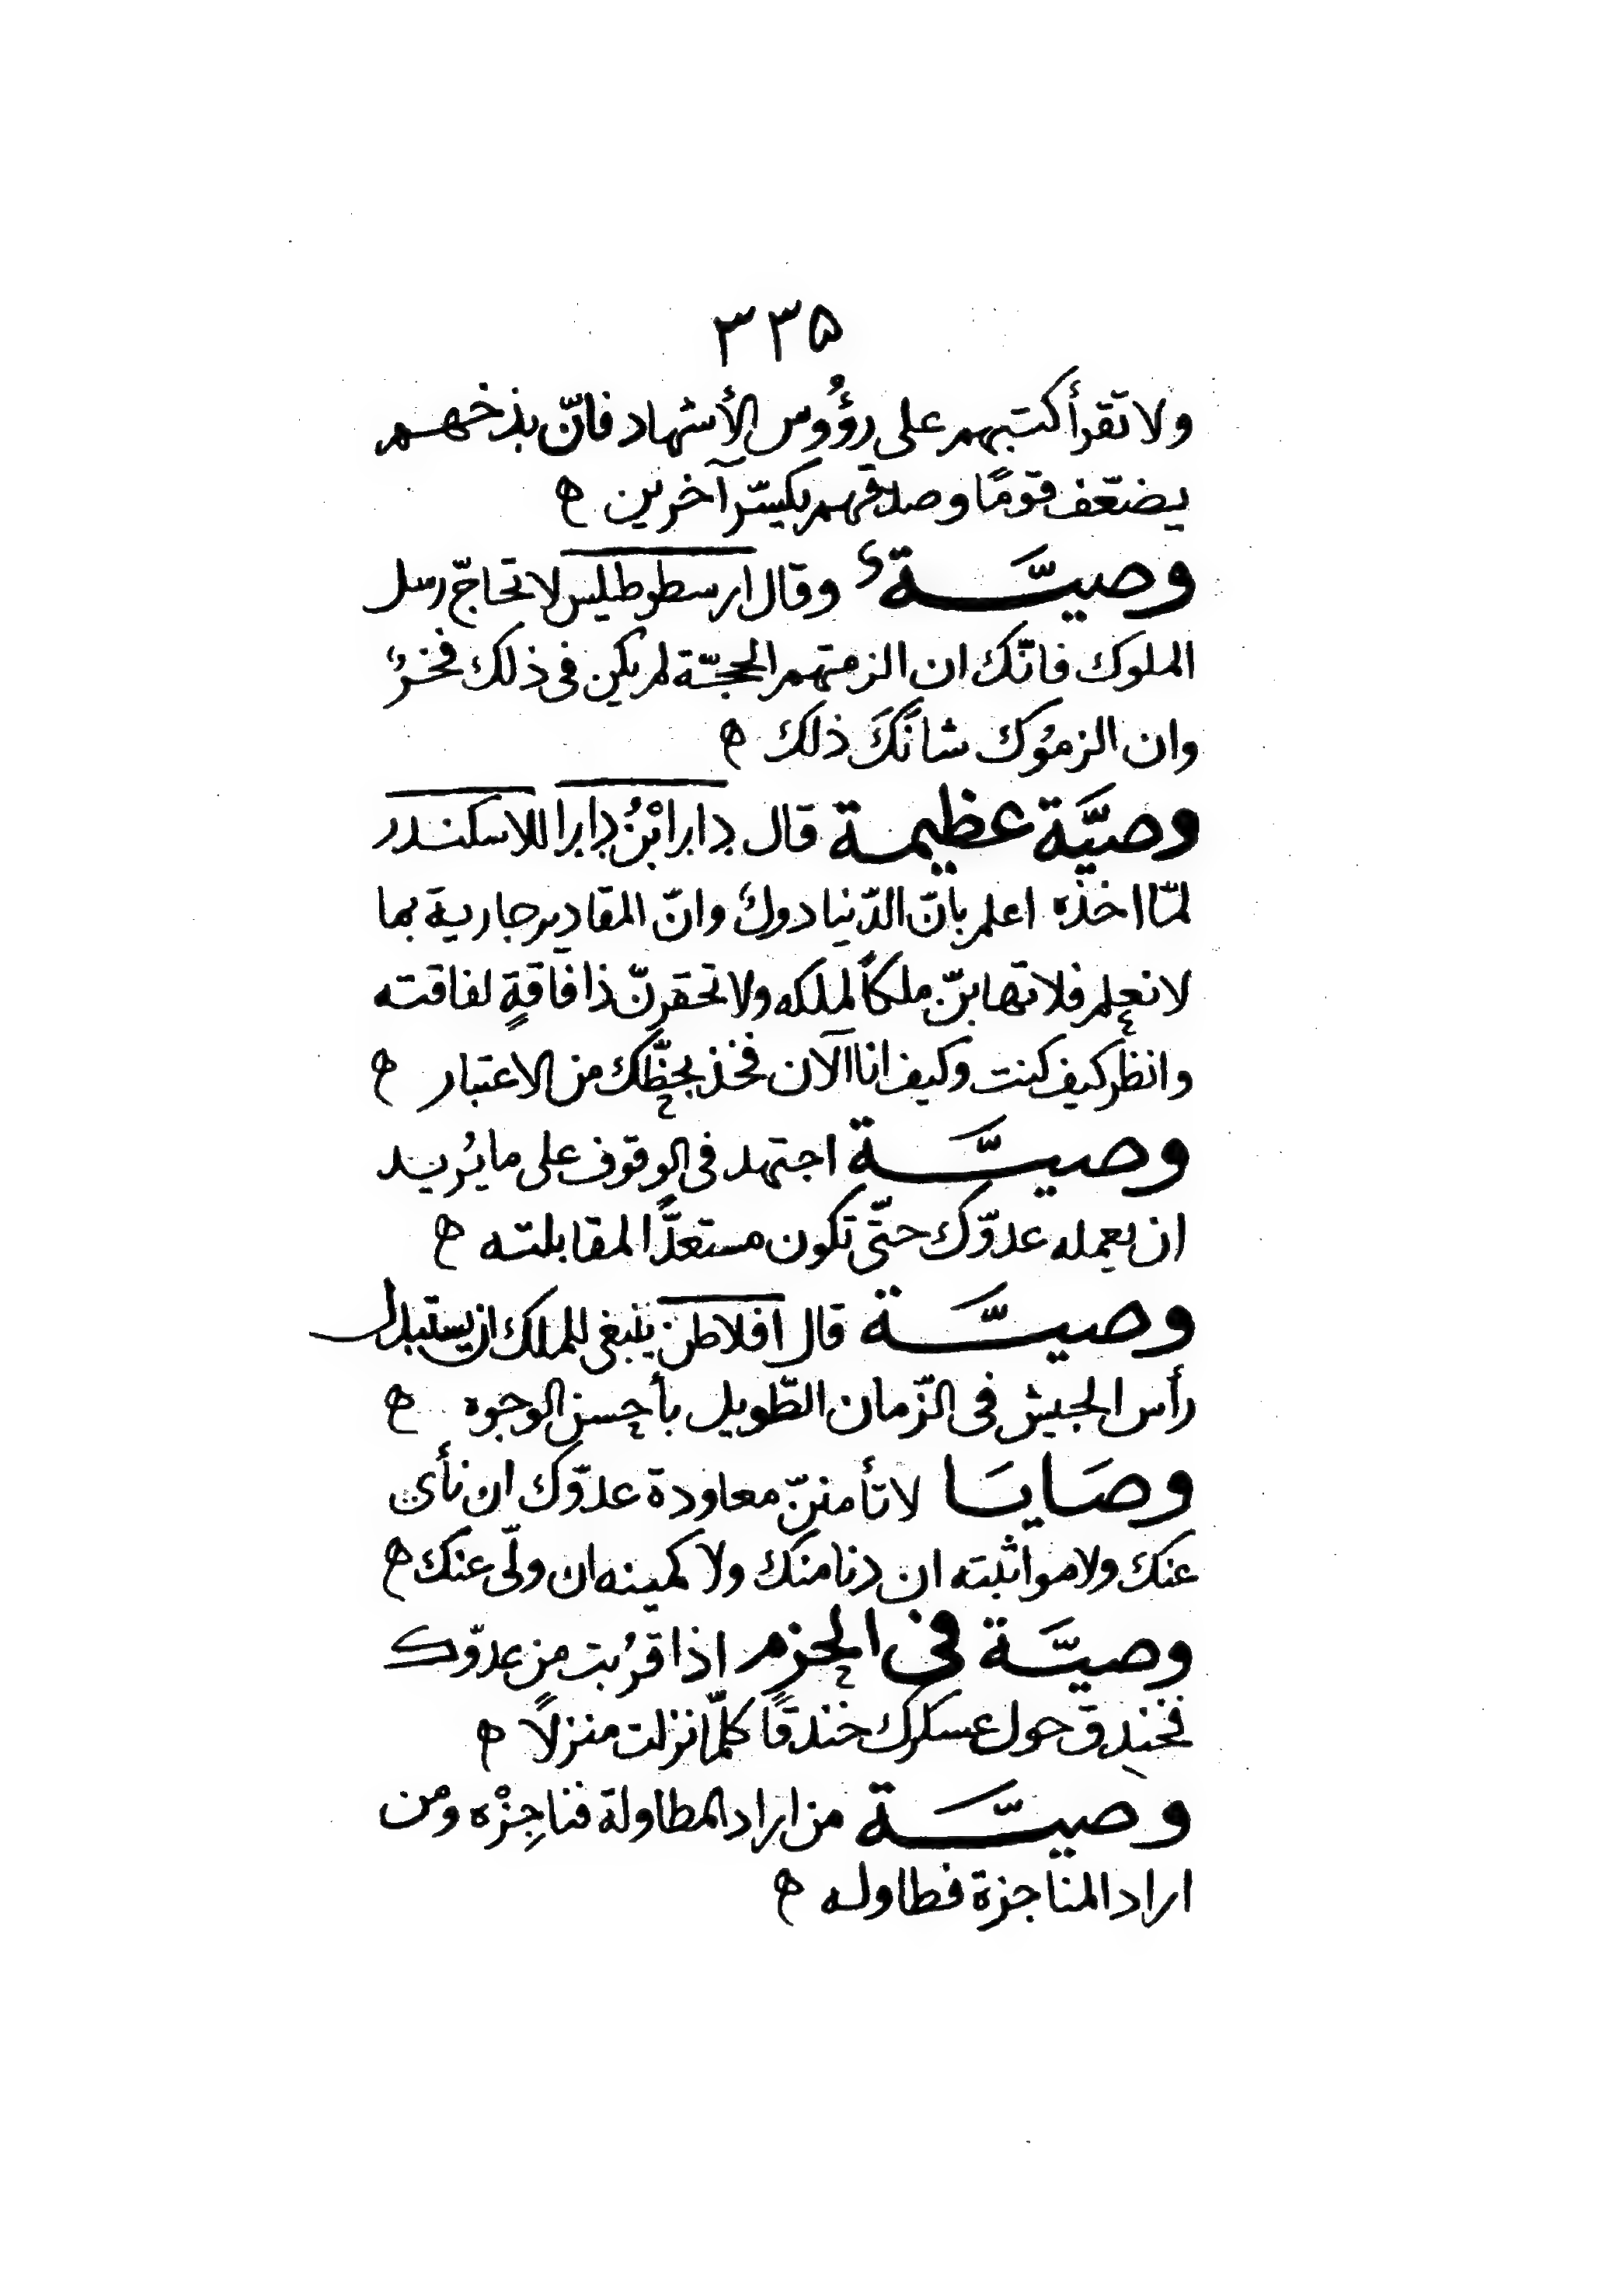 ٣٣٥
ولا تقرأ كتبهم على رؤُوس الأشهاد فانّ بذخهم
يضعّف قومًا وصدقهم يكسّر آخرين ه
وصيّة وقال ارسطوطليس لا تحاجّ رسل
الملوك فانّك ان الزمتهم الحجّة لم يكن في ذلك فخرٌ
وان الزمُوك شانَكَ ذلك ه
وصيَّة عظيمة قال دارا ابْنُ دارا للاسكندر
لمّا اخذه اعلم بانّ الدّنيا دولٌ وانّ المقادير جارية بما
لا نعلم فلا تهابنّ ملكًا لملكه ولا تحقرنّ ذا فاقةٍ لفاقته
وانظر كيف كنت وكيف انا الآن فخذ بحظّك من الاعتبار ه
وصيَّة اجتهد في الوقوف على ما يُريد
ان يعمله عدوّك حتّى تكون مستعدًّا لمقابلته ه
وصيَّة قال افلاطن ينبغي للملك ان يستبدل
رأس الجيش في الزّمان الطّويل بأحسن الوجوه ه
وصَايَا لا تأمننّ معاودة عدوّك ان نأى
عنك ولا مواثبته ان دنا منك ولا كمينه ان ولّى عنك ه
وصيَّة في الحزم اذا قرُبت من عدوّك
فخندق حول عسكرك خندقًا كلّما نزلت منزلًا ه
وصيَّة من اراد المطاولة فناجِزْه ومن
اراد المناجزة فطاوله ه